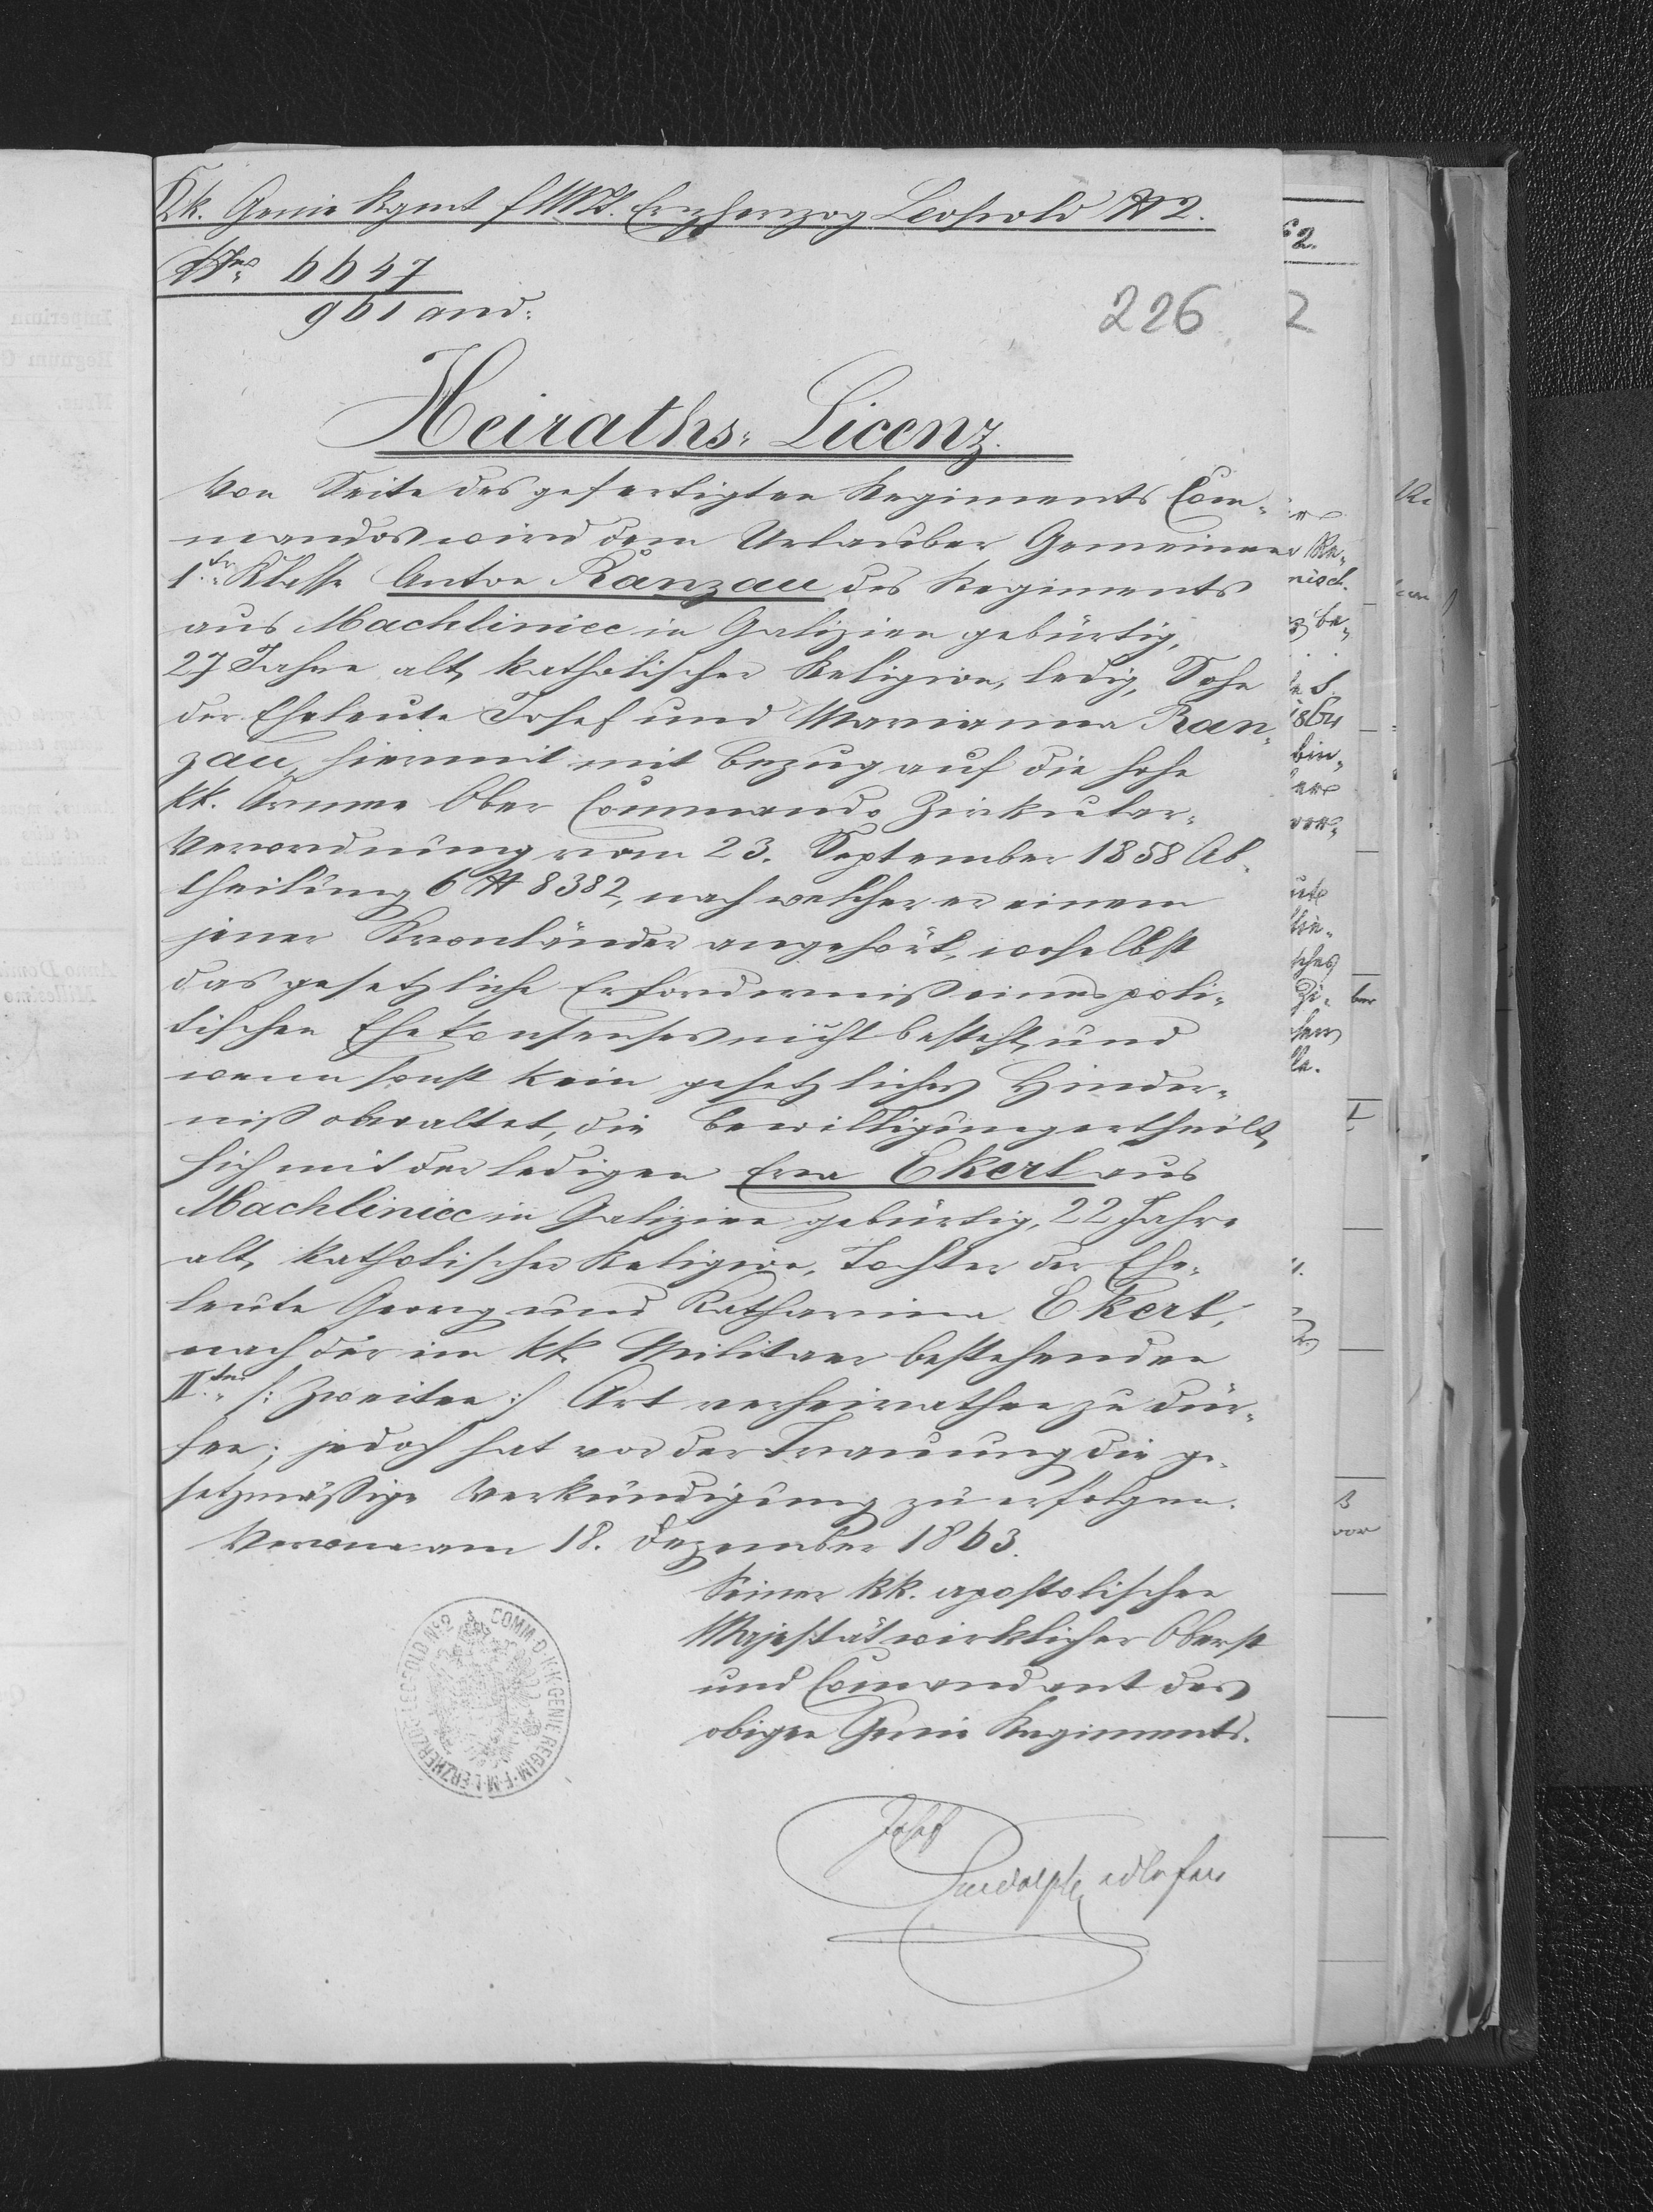 K.k. Genie Rgmt FML. Erzherzog Leopold N 2.
Nro 6647
961 and:
226
Heiraths-Licenz.
Von Seite des gefertigten Regiments Com-
mandos wird dem Urlauber Gemeinen
1ter Klasse Anton Ranzau des Regiments
aus Machliniec in Galizien gebürtig,
27 Jahre alt, katholischer Religion, ledig, Sohn
der Eheleute Josef und Marianna Ran-
zau, hiermit mit Bezug auf die hohe
kk. Armee Ober Commando Zirkular-
Verordnung vom 23. September 1858 Ab-
theilung 6 N 8382, nach welcher er einem
jener Kronländer angehört, woselbst
das gesetzliche Erforderniß eines poli-
tischen Ehekonsenses nicht besteht, und
wenn sonst kein gesetzliches Hinder-
niß obwaltet, die Bewilligung ertheilt,
sich mit der ledigen Eva Ekert aus
Machliniec in Galizien gebürtig, 22 Jahre
alt, katholischer Religion, Tochter der Ehe-
leute Georg und Katharina Ekert,
nach der im kk. Militaer bestehenden
IIten /: zweiten :/ Art verheirathen zu dür-
fen; jedoch hat vor der Trauung die ge-
setzmäßige Verkündigung zu erfolgen.
Verona am 18. Dezember 1863.
Seiner kk. apostolischen
Majestät wirklicher Oberst
und Commandant des
obigen Genie Regiments.
COMM. D. K. K. GENIE REGIM. F. M. L. ERZHERZOG LEOPOLD No 2